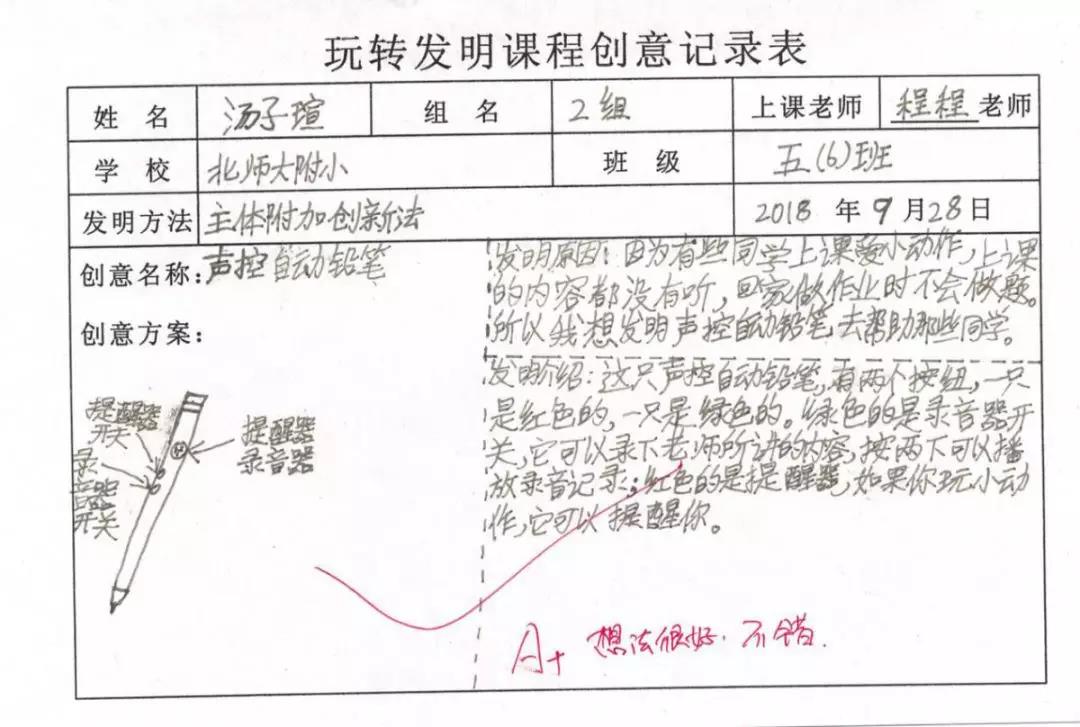 玩转发明课程创意记录表
姓 名 汤子瑄 组 名 2组 上课老师 程程老师
学 校 北师大附小 班 级 五(6)班
发明方法 主体附加创新法 2018 年 9 月 28 日
创意名称:声控自动铅笔
创意方案:
提醒器
开关
录
音器
开关
提醒器
录音器
发明原因:因为有些同学上课耍小动作,上课
的内容都没有听,回家做作业时不会做题。
所以我想发明声控自动铅笔去帮助那些同学。
发明介绍:这只声控自动铅笔,有两个按纽,一只
是红色的,一只是绿色的。绿色的是录音器开
关,它可以录下老师所讲的内容,按两下可以播
放录音记录;红色的是提醒器,如果你玩小动
作,它可以提醒你。
A+ 想法很好.不错.